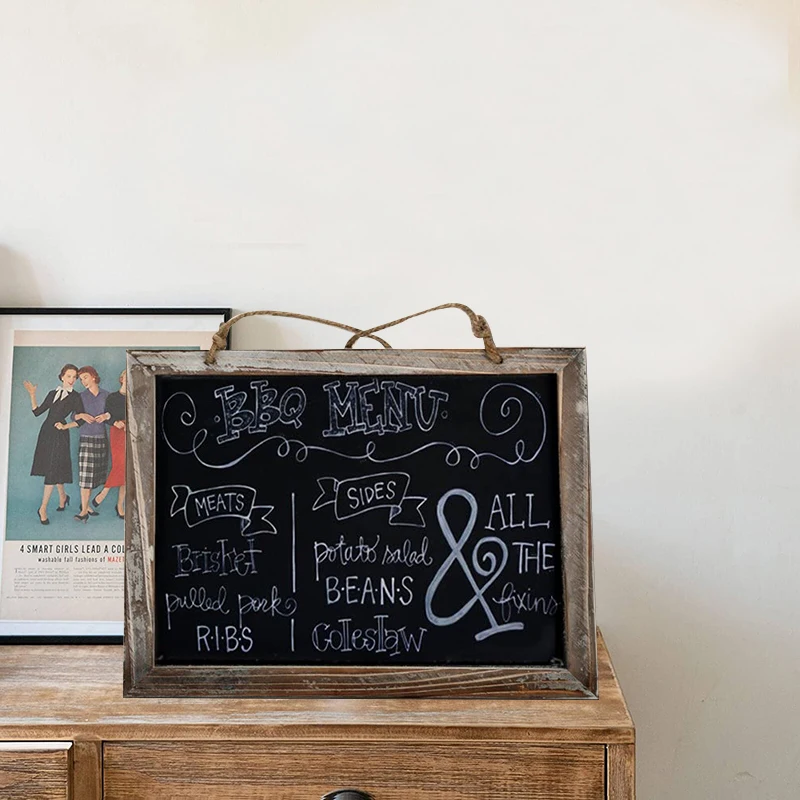 BBQ MENU
MEATS
Brisket
pulled pork
R·I·B·S
SIDES
potato salad
B·E·A·N·S
Coleslaw
& ALL
THE
fixins
4 SMART GIRLS LEAD A COL
washable fall fashions of MAZET